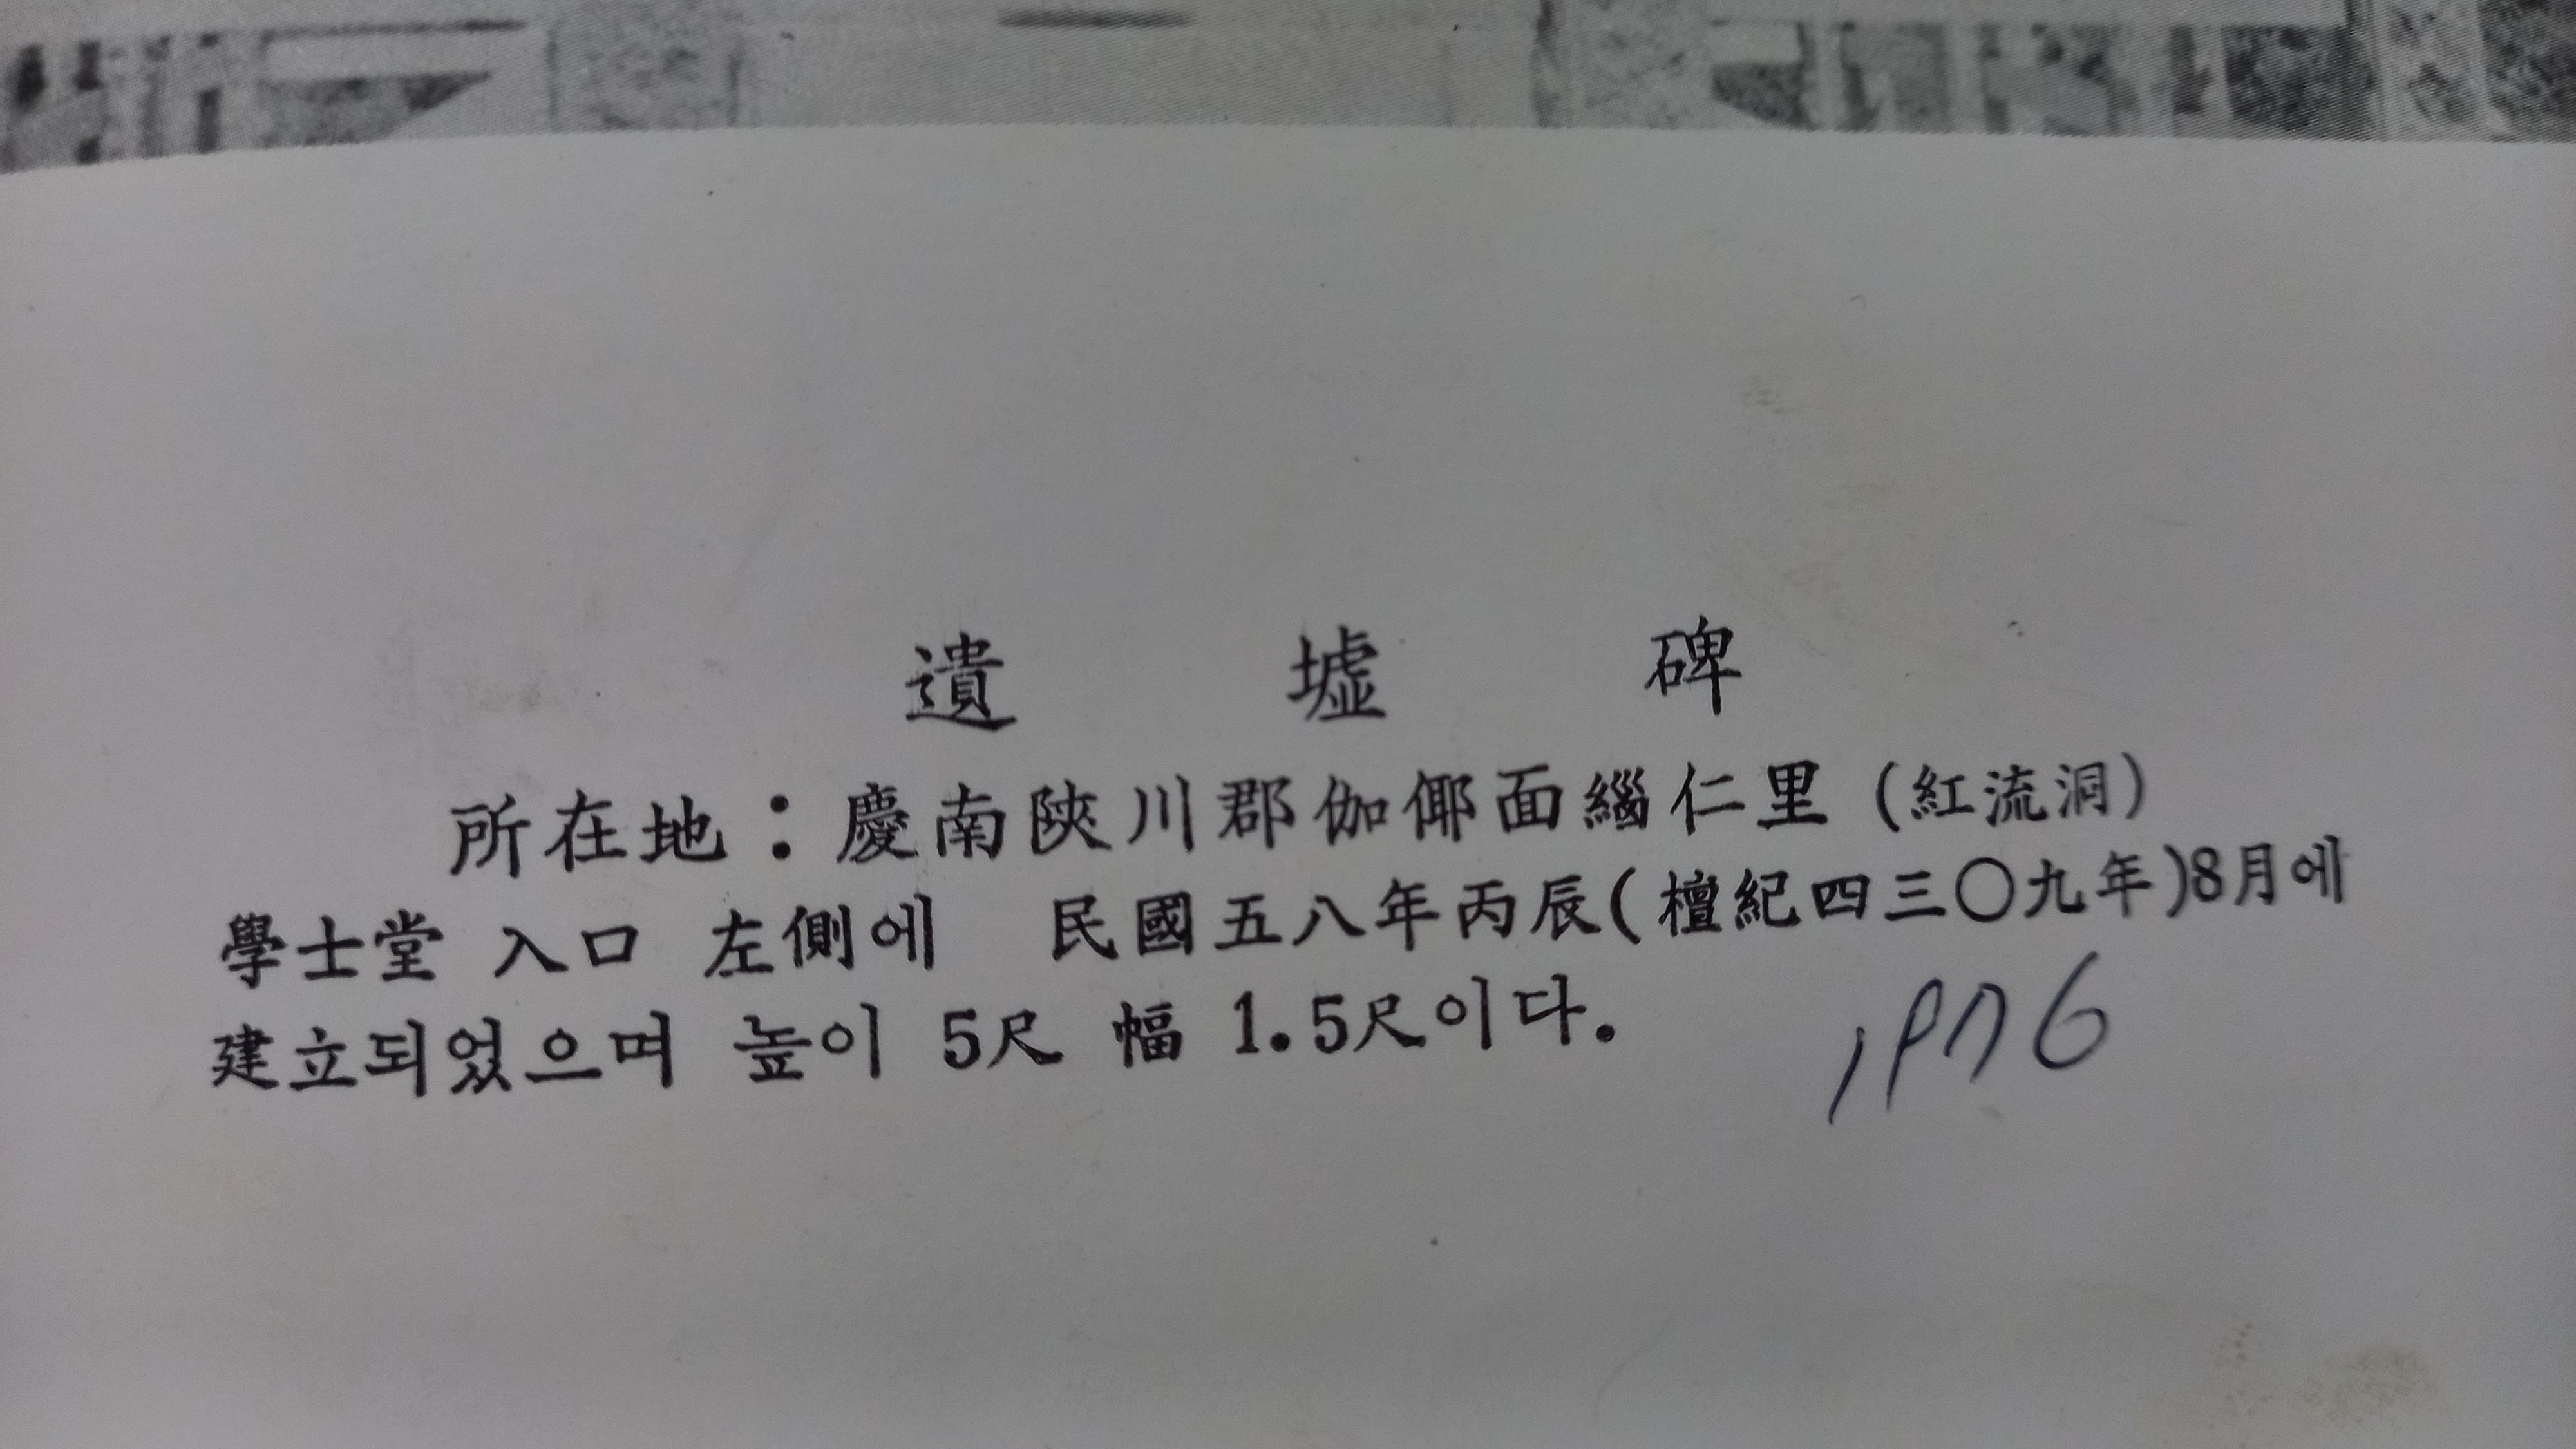 遺 墟 碑
所在地：慶南陜川郡伽倻面緇仁里 (紅流洞)
學士堂 入口 左側에 民國五八年丙辰(檀紀四三〇九年)8月에
建立되었으며 높이 5尺 幅 1.5尺이다.
1976